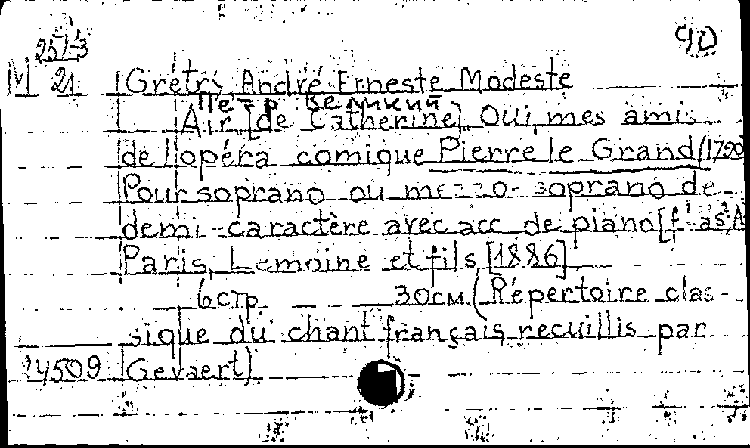 25/-3
М 21 Grétry, André Erneste Modeste
Петр Великий
Air [de Catherine] Oui, mes amis
de l'opéra comique Pierre le Grand (1790
Pour soprano ou mezzo-soprano de
demi-caractère avec acc de piano
Paris, Lemoine et fils [1886]
6 стр. 30см. (Répertoire clas-
sique du chant français recuillis par
24509 Gevaert)